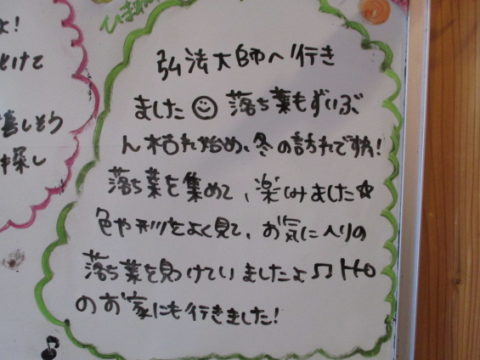 ひまわり
弘法大師へ行き
ました☺落ち葉もずいぶ
ん枯れ始め、冬の訪れですね!
落ち葉を集めて、楽しみました☆
色や形をよく見て、お気に入りの
落ち葉を見つけていましたよ♫
のお家にも行きました!
よ!